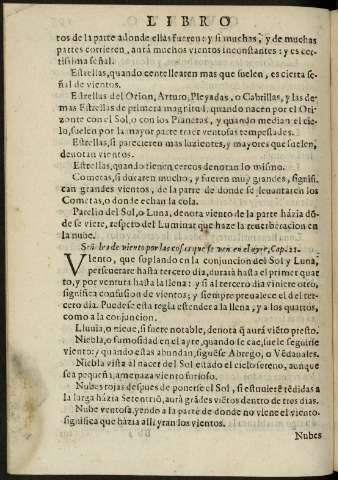 LIBRO
tos de la parte adonde ellas fueren: y si muchas, y de muchas
partes corrieren, aurá muchos vientos inconstantes: y es cer-
tissima señal.
Estrellas, quando centellearen mas que suelen, es cierta se-
ñal de vientos.
Estrellas del Orion, Arturo, Pleyadas, o Cabrillas, y las de-
mas Estrellas de primera magnitud, quando nacen por el Ori
zonte con el Sol, o con los Planetas, y quando median el cie-
lo, suelen por la mayor parte traer ventosas tempestades.
Estrellas, si parecieren mas luzientes, y mayores que suelen,
denotan vientos.
Estrellas, quando tienen cercos denotan lo mismo.
Cometas, si duraren mucho, y fueren muy grandes, signifi-
can grandes vientos, de la parte de donde se leuantaren los
Cometas, o donde echan la cola.
Parelio del Sol, o Luna, denota viento de la parte házia dõ-
de se viere, respeto del Luminar que haze la reuerberacion en
la nube.
Señales de viento por las cosas que se ven en el ayre, Cap. 21.
VIento, que soplando en la conjuncion del Sol y Luna,
perseuerare hasta tercero dia, durará hasta el primer quar
to, y por ventura hasta la llena: y si al tercero dia viniere otro,
significa confusion de vientos; y siempre preualece el del ter-
cero dia. Puedese esta regla estender a la llena, y a los quartos,
como a la conjuncion.
Lluuia, o nieue, si fuere notable, denota q̃ aurá viẽto presto.
Niebla, o fumosidad en el ayre, quando se cae, suele seguirse
viento: y quando estas abundan, siguese Abrego, o Vẽdauales.
Niebla vista al nacer del Sol estãdo el cielo sereno, aunque
sea pequeña, amenaza viento furioso.
Nubes rojas despues de ponerse el Sol, si estuuierẽ tẽdidas a
la larga házia Setentriõ, aurá grãdes viẽtos dentro de tres dias.
Nube ventosa, yendo a la parte de donde no viene el viento,
significa que házia alli yran los vientos.
Nubes